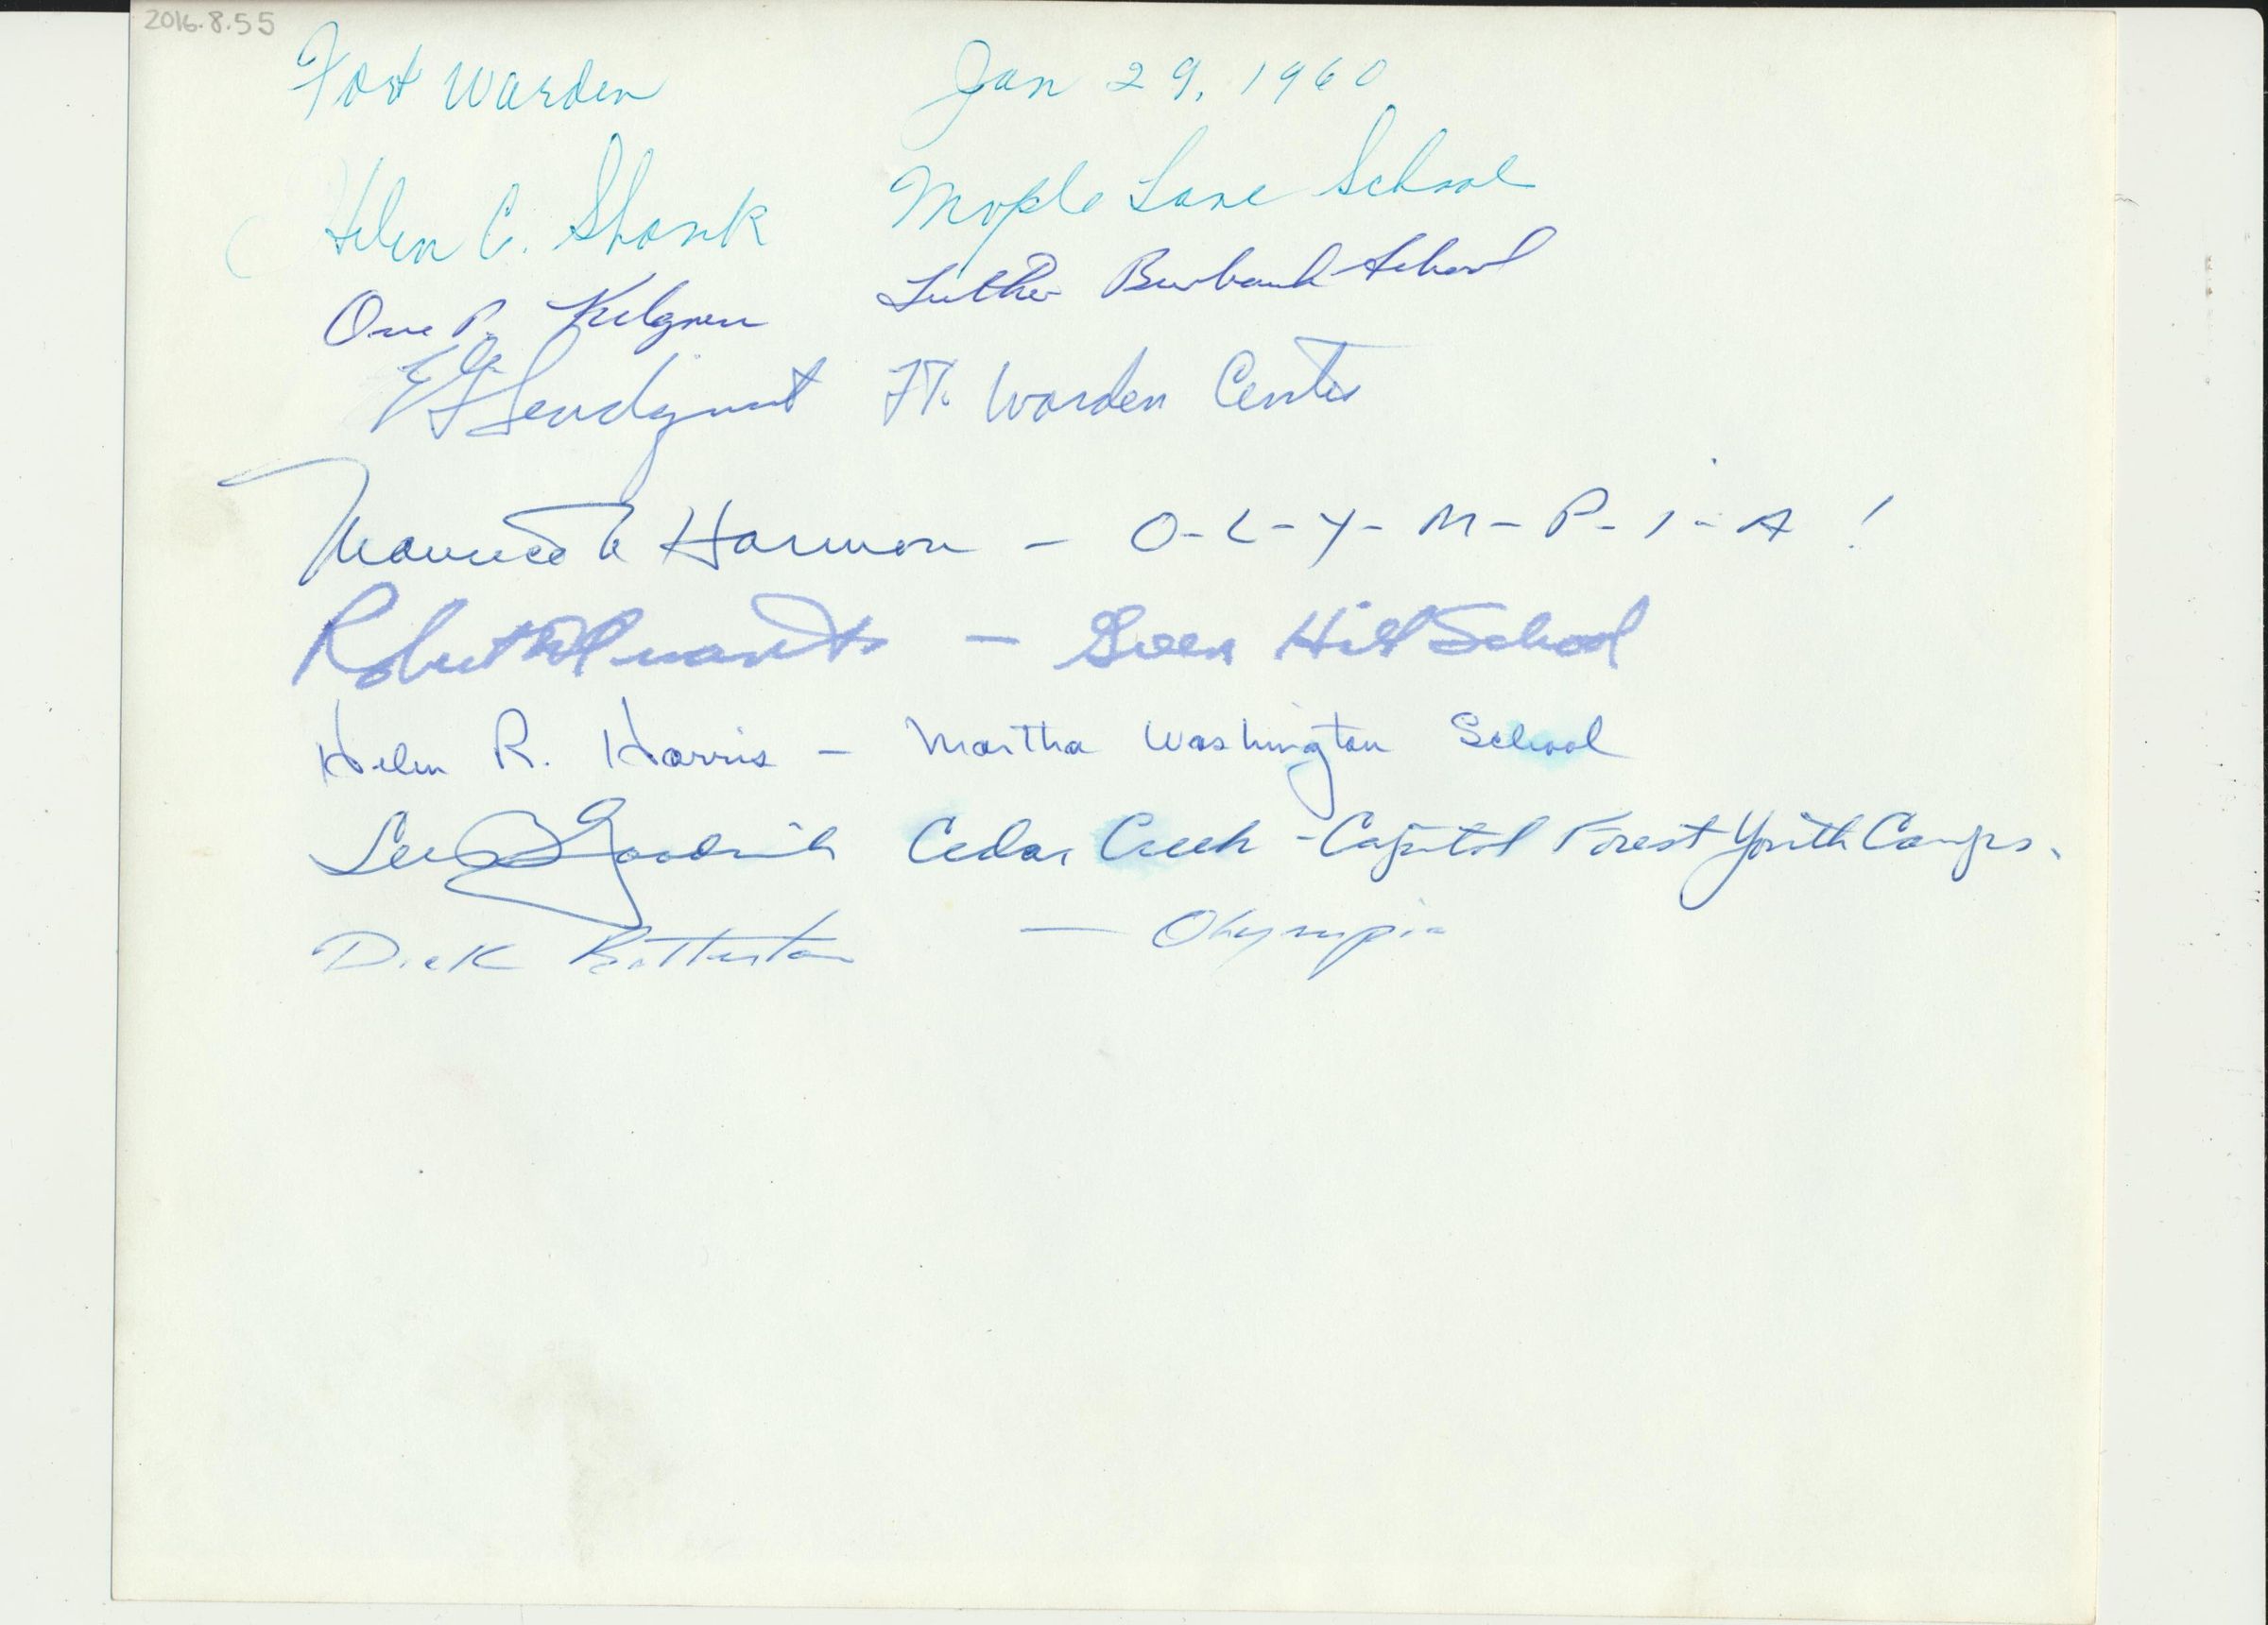 2016.8.55
Fort Warden Jan 29, 1960
Helen C. Shank Maple Lane School
Ove P. Kilgren Luther Burbank School
Ft. Worden Center
Maurice A Harmon - O-L-Y-M-P-I-A!
Robert - Green Hill School
Helen R. Harris - Martha Washington School
Lee B Goodrich Cedar Creek - Capitol Forest Youth Camps.
Dick Batterton - Olympia